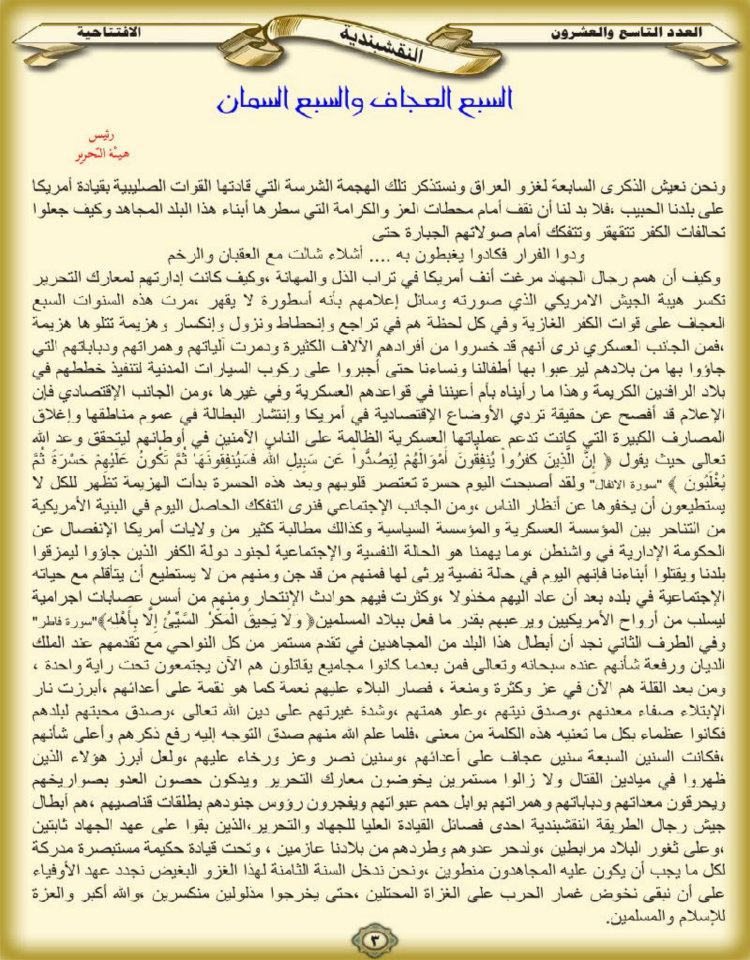 العدد التاسع والعشرون
النقشبندية
الافتتاحية
السبع العجاف والسبع السمان
رئيس
هيئة التحرير
ونحن نعيش الذكرى السابعة لغزو العراق ونستذكر تلك الهجمة الشرسة التي قادتها القوات الصليبية بقيادة أمريكا
على بلدنا الحبيب ،فلا بد لنا أن نقف أمام محطات العز والكرامة التي سطرها أبناء هذا البلد المجاهد وكيف جعلوا
تحالفات الكفر تتقهقر وتتفكك أمام صولاتهم الجبارة حتى
ودوا الفرار فكادوا يغبطون به .... أشلاء شالت مع العقبان والرخم
وكيف أن همم رجال الجهاد مرغت أنف أمريكا في تراب الذل والمهانة ،وكيف كانت إدارتهم لمعارك التحرير
تكسر هيبة الجيش الامريكي الذي صورته وسائل إعلامهم بأنه أسطورة لا يقهر ،مرت هذه السنوات السبع
العجاف على قوات الكفر الغازية وفي كل لحظة هم في تراجع وإنحطاط ونزول وإنكسار وهزيمة تتلوها هزيمة
،فمن الجانب العسكري نرى أنهم قد خسروا من أفرادهم الآلاف الكثيرة ودمرت آلياتهم وهمراتهم ودباباتهم التي
جاؤوا بها من بلادهم ليرعبوا بها أطفالنا ونساءنا حتى أُجبروا على ركوب السيارات المدنية لتنفيذ خططهم في
بلاد الرافدين الكريمة وهذا ما رأيناه بأم أعيننا في قواعدهم العسكرية وفي غيرها ،ومن الجانب الإقتصادي فإن
الإعلام قد أفصح عن حقيقة تردي الأوضاع الإقتصادية في أمريكا وإنتشار البطالة في عموم مناطقها وإغلاق
المصارف الكبيرة التي كانت تدعم عملياتها العسكرية الظالمة على الناس الآمنين في أوطانهم ليتحقق وعد الله
تعالى حيث يقول ﴿ إِنَّ الَّذِينَ كَفَرُواْ يُنفِقُونَ أَمْوَالَهُمْ لِيَصُدُّواْ عَن سَبِيلِ اللّهِ فَسَيُنفِقُونَهَا ثُمَّ تَكُونُ عَلَيْهِمْ حَسْرَةً ثُمَّ
يُغْلَبُونَ ﴾ "سورة الانفال" ولقد أصبحت اليوم حسرة تعتصر قلوبهم وبعد هذه الحسرة بدأت الهزيمة تظهر للكل لا
يستطيعون أن يخفوها عن أنظار الناس ،ومن الجانب الإجتماعي فنرى التفكك الحاصل اليوم في البنية الأمريكية
من التناحر بين المؤسسة العسكرية والمؤسسة السياسية وكذالك مطالبة كثير من ولايات أمريكا الإنفصال عن
الحكومة الإدارية في واشنطن ،وما يهمنا هو الحالة النفسية والإجتماعية لجنود دولة الكفر الذين جاؤوا ليمزقوا
بلدنا ويقتلوا أبناءنا فإنهم اليوم في حالة نفسية يرثى لها فمنهم من قد جن ومنهم من لا يستطيع أن يتأقلم مع حياته
الإجتماعية في بلده بعد أن عاد اليهم مخذولا ،وكثرت فيهم حوادث الإنتحار ومنهم من أسس عصابات اجرامية
ليسلب من أرواح الأمريكيين ويرعبهم بقدر ما فعل ببلاد المسلمين﴿ وَلَا يَحِيقُ الْمَكْرُ السَّيِّئُ إِلَّا بِأَهْلِهِ﴾"سورة فاطر"
وفي الطرف الثاني نجد أن أبطال هذا البلد من المجاهدين في تقدم مستمر من كل النواحي مع تقدمهم عند الملك
الديان ورفعة شأنهم عنده سبحانه وتعالى فمن بعدما كانوا مجاميع يقاتلون هم الآن يجتمعون تحت راية واحدة ،
ومن بعد القلة هم الآن في عز وكثرة ومنعة ، فصار البلاء عليهم نعمة كما هو نقمة على أعدائهم ،أبرزت نار
الإبتلاء صفاء معدنهم ،وصدق نيتهم ،وعلو همتهم ،وشدة غيرتهم على دين الله تعالى ،وصدق محبتهم لبلدهم
فكانوا عظماء بكل ما تعنيه هذه الكلمة من معنى ،فلما علم الله منهم صدق التوجه إليه رفع ذكرهم وأعلى شأنهم
،فكانت السنين السبعة سنين عجاف على أعدائهم ،وسنين نصر وعز ورخاء عليهم ،ولعل أبرز هؤلاء الذين
ظهروا في ميادين القتال ولا زالوا مستمرين يخوضون معارك التحرير ويدكون حصون العدو بصواريخهم
ويحرقون معداتهم ودباباتهم وهمراتهم بوابل حمم عبواتهم ويفجرون رؤوس جنودهم بطلقات قناصيهم ،هم أبطال
جيش رجال الطريقة النقشبندية احدى فصائل القيادة العليا للجهاد والتحرير،الذين بقوا على عهد الجهاد ثابتين
،وعلى ثغور البلاد مرابطين ،ولدحر عدوهم وطردهم من بلادنا عازمين ، وتحت قيادة حكيمة مستبصرة مدركة
لكل ما يجب أن يكون عليه المجاهدون منطوين ،ونحن ندخل السنة الثامنة لهذا الغزو البغيض نجدد عهد الأوفياء
على أن نبقى نخوض غمار الحرب على الغزاة المحتلين ،حتى يخرجوا مذلولين منكسرين ،والله أكبر والعزة
للإسلام والمسلمين.
٣